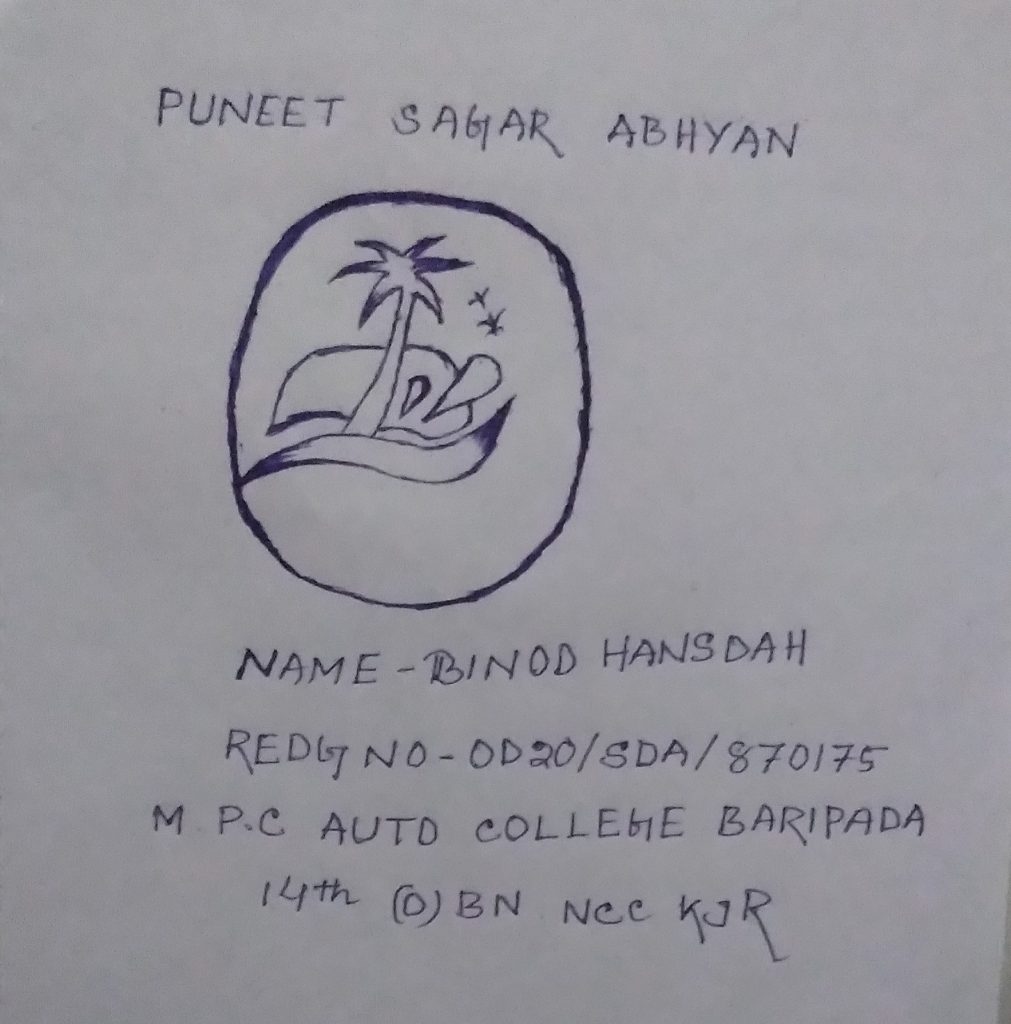 PUNEET SAGAR ABHYAN
NAME - BINOD HANSDAH
REDG NO - OD20/SDA/870175
M P.C AUTO COLLEGE BARIPADA
14th (O) BN NCC KJR